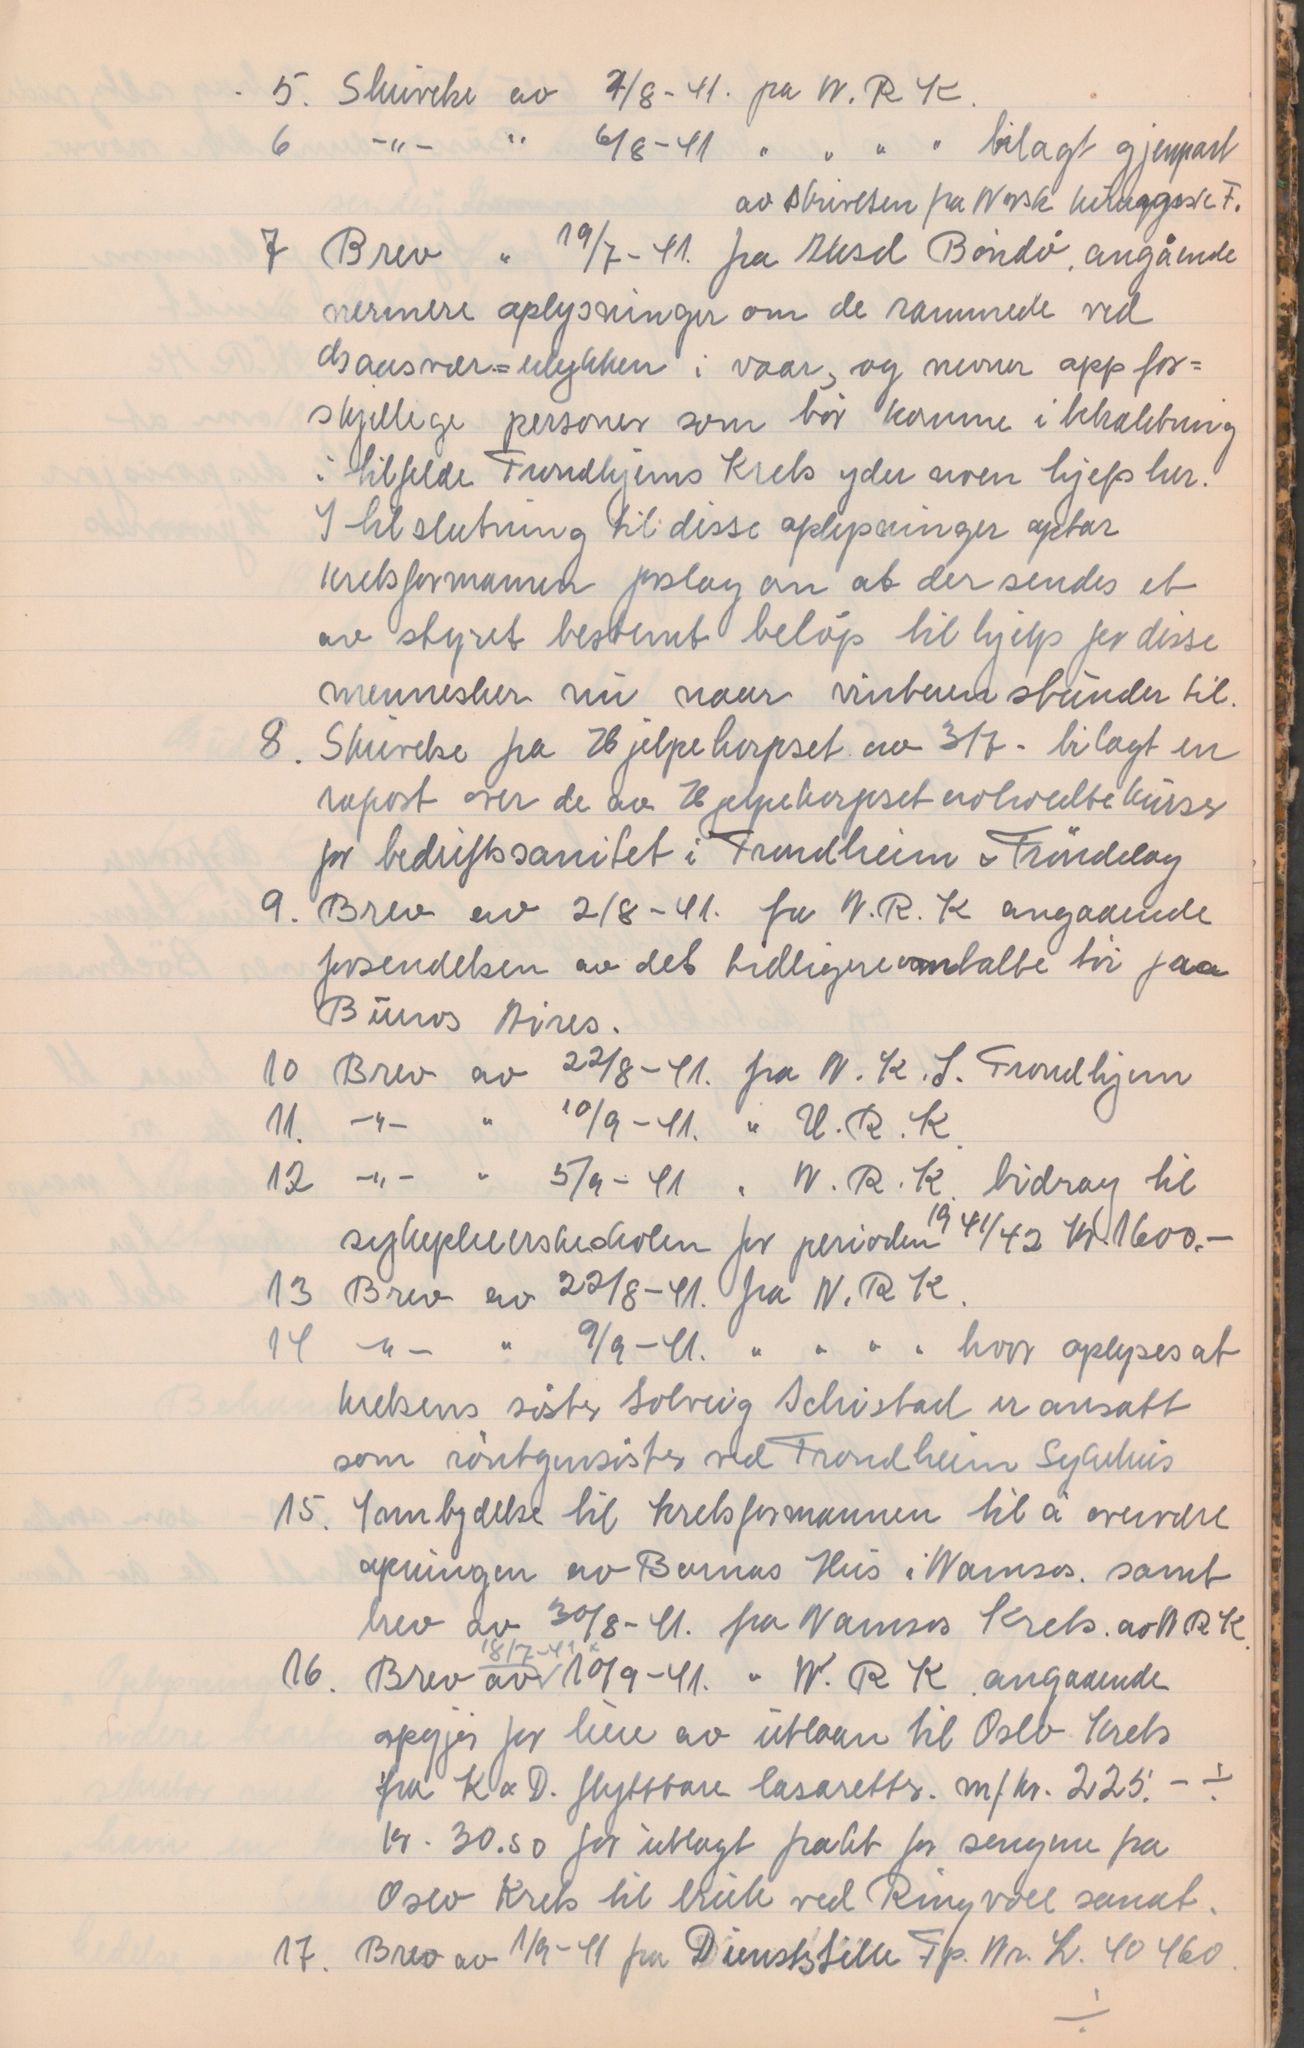 5. Skrivelse av 7/8-41. fra N. R K.
6 -"- " 6/8-41 " " " " bilagt gjenpart
av skrivelsen fra Norsk
7 Brev " 19/7-41. fra Böndö, angående
nermere oplysninger om de rammede ved
ulykken i vaar, og nevner opp for=
skjellege personer som bör komme i betraktning
i tilfelde Trondhjems Krets yder noen hjelp her.
I tilslutning til disse oplysninger optar
kretsformannen forslag om at der sendes et
av styret bestemt belöp til hjelp for disse
mennesker nu naar vinteren stunder til.
8. Skrivelse fra Hjelpekorpset av 3/7- bilagt en
raport over de av Hjelpekorpset avholdte kurser
for bedriftssanitet i Trondheim & Tröndelag
9. Brev av 2/8-41. fra N.R.K angaaende
forsendelsen av det tidligere omtalte töi fra
Buenos Aires.
10 Brev av 22/8-41. fra N.K.S. Trondhjem
11. -"- " 10/9-41. " U.R.K.
12 -"- " 5/9-41 " N.R.K. bidrag til
sykepleierskeskolen for perioden 19 41/42 Kr. 1600.-
13 Brev av 22/8-41. fra N.R K.
14 -"- " 9/9-41. " " " " hvor oplyses at
kretsens söster Solveig Schistad er ansatt
som röntgensöster ved Trondheim Sykehus
15. Innbydelse til kretsformannen til å overvære
åpningen av Barnas Hus i Namsos. samt
brev av 30/8-41. fra Namsos Krets. av N R K.
18/7-41 "
16. Brev av 10/9-41. " N. R K. angaaende
opgjör for leie av utlaan til Oslo Krets
fra K & D. flyttbare lasaretter. m/kr. 225.- ÷
kr. 30.50 for utlagt frakt for sengene fra
Oslo Krets til bruk ved Ringvoll sanat.
17. Brev av 1/9-41 fra Dienststelle Fp. Nr. L. 40460.
÷